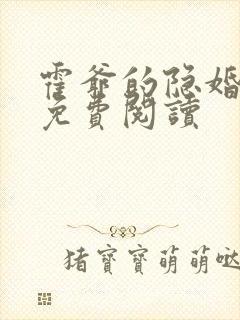 霍爷的隐婚
免費閱讀
猪寶寶萌萌哒